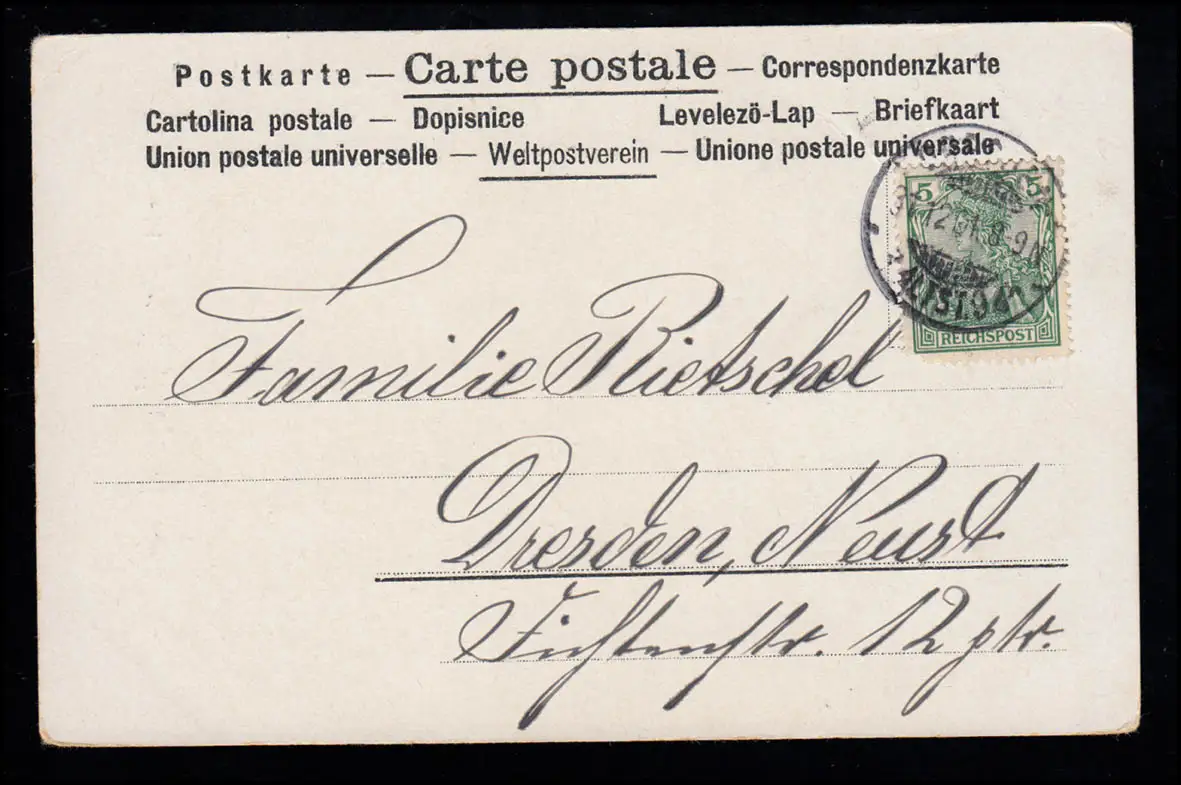 Postkarte — Carte postale — Correspondenzkarte
Cartolina postale — Dopisnice Levelezö-Lap — Briefkaart
Union postale universelle — Weltpostverein — Unione postale universale
5 5
12 01 8-9
ALTST. 9
REICHSPOST
Familie Rietschel
Dresden, Neust
Fichtenstr. 12 ptr.